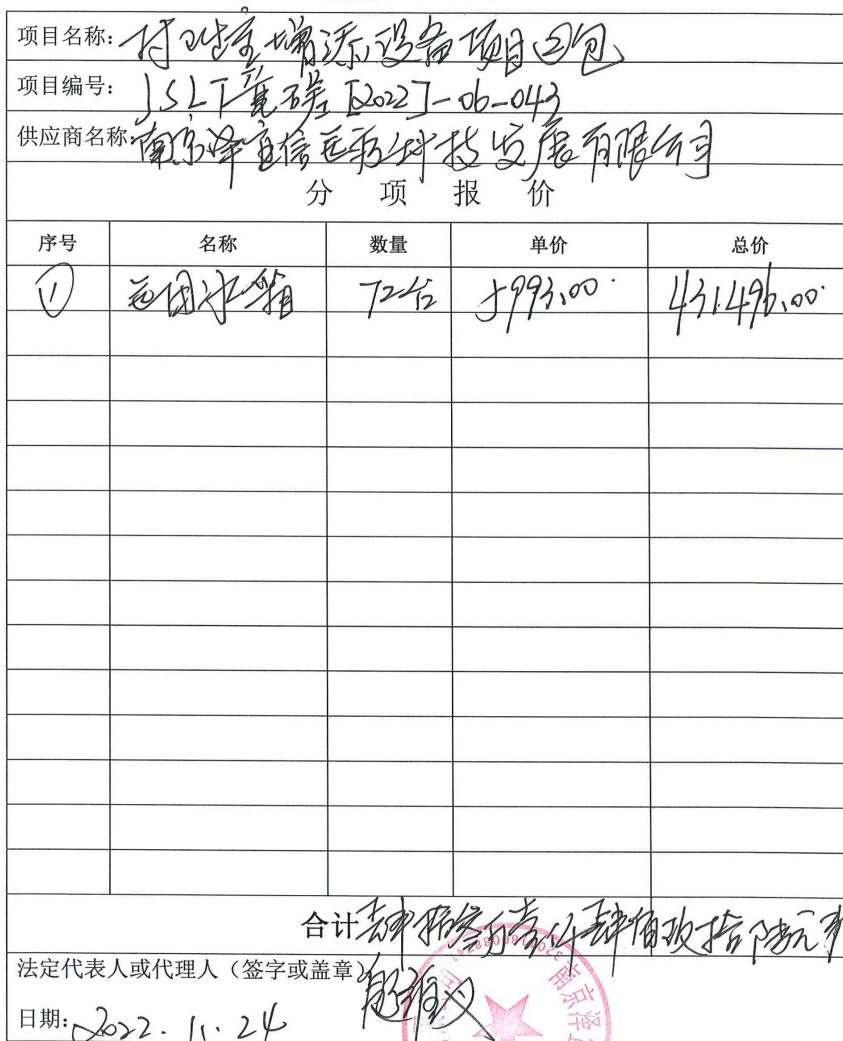 项目名称:村卫生室增添设备项目四包
项目编号:JSLT竞磋[2022]-06-043
供应商名称:南京泽宜信医药科技发展有限公司
分 项 报 价
序号 名称 数量 单价 总价
① 医用冰箱 72台 5993.00 431,496.00
合计 肆拾叁万壹仟肆佰玖拾陆元整
法定代表人或代理人(签字或盖章)
日期:2022.11.24
南京泽